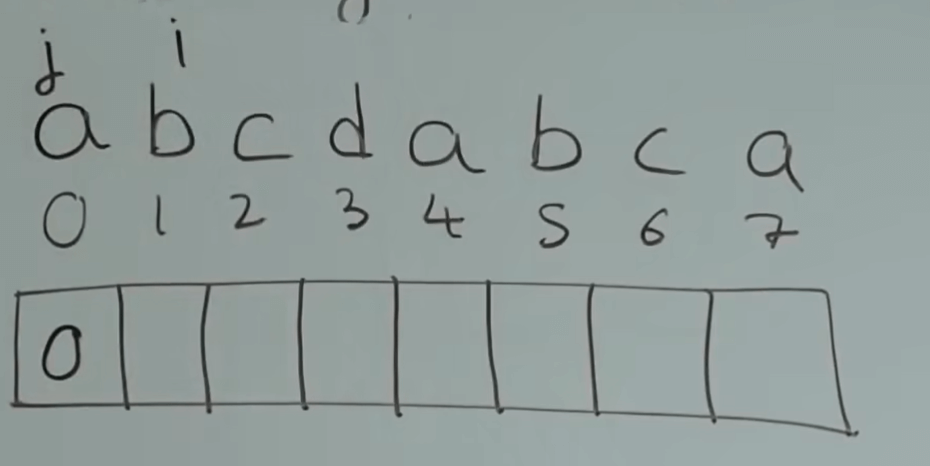 ()
j i
a b c d a b c a
0 1 2 3 4 5 6 7
0